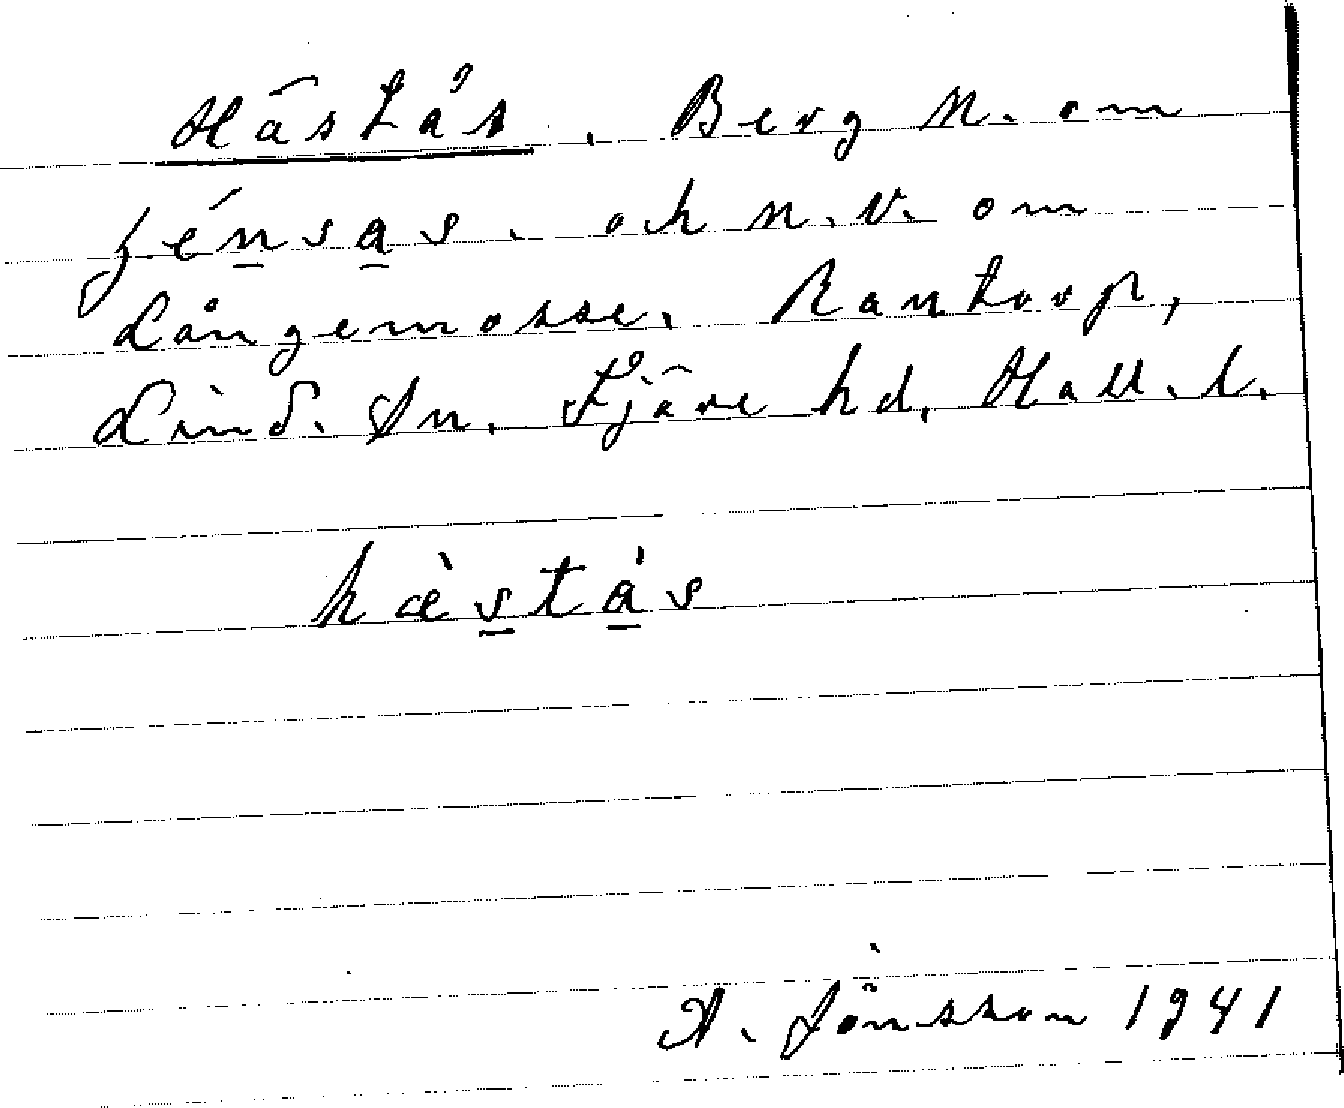 Hästås. Berg N. om
jénsas. och n.v. om
Långemosse. Rantorp,
Lind. Sn. Fjäre hd. Hall. l.
hæ̀stás
A. Jönsson 1941